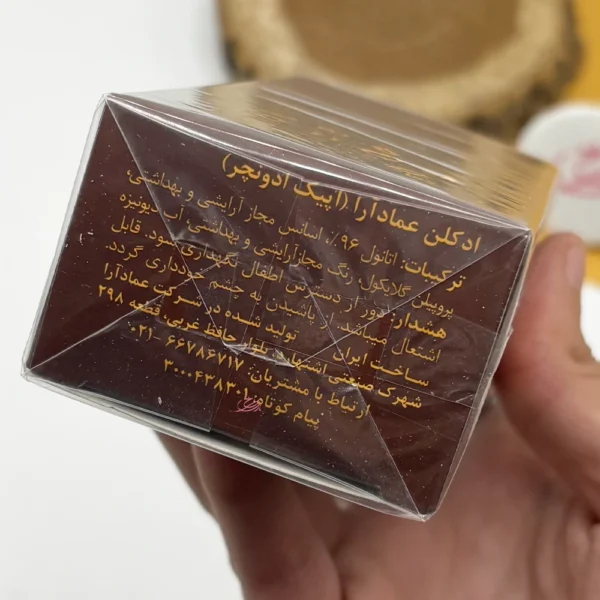 ادکلن عمادآرا (اپیک ادونچر)
ترکیبات: اتانول ۹۶٪، اسانس مجاز آرایشی و بهداشتی،
پروپیلن گلایکول، رنگ مجاز آرایشی و بهداشتی، آب دیونیزه
هشدار: دور از دسترس اطفال نگهداری شود. قابل
اشتعال میباشد. از پاشیدن به چشم خودداری گردد.
ساخت ایران تولید شده در شرکت عمادآرا
شهرک صنعتی اشتهارد، بلوار حافظ غربی، قطعه ۲۹۸
ارتباط با مشتریان: ۶۶۷۸۶۷۱۷ -۰۲۱
پیام کوتاه: